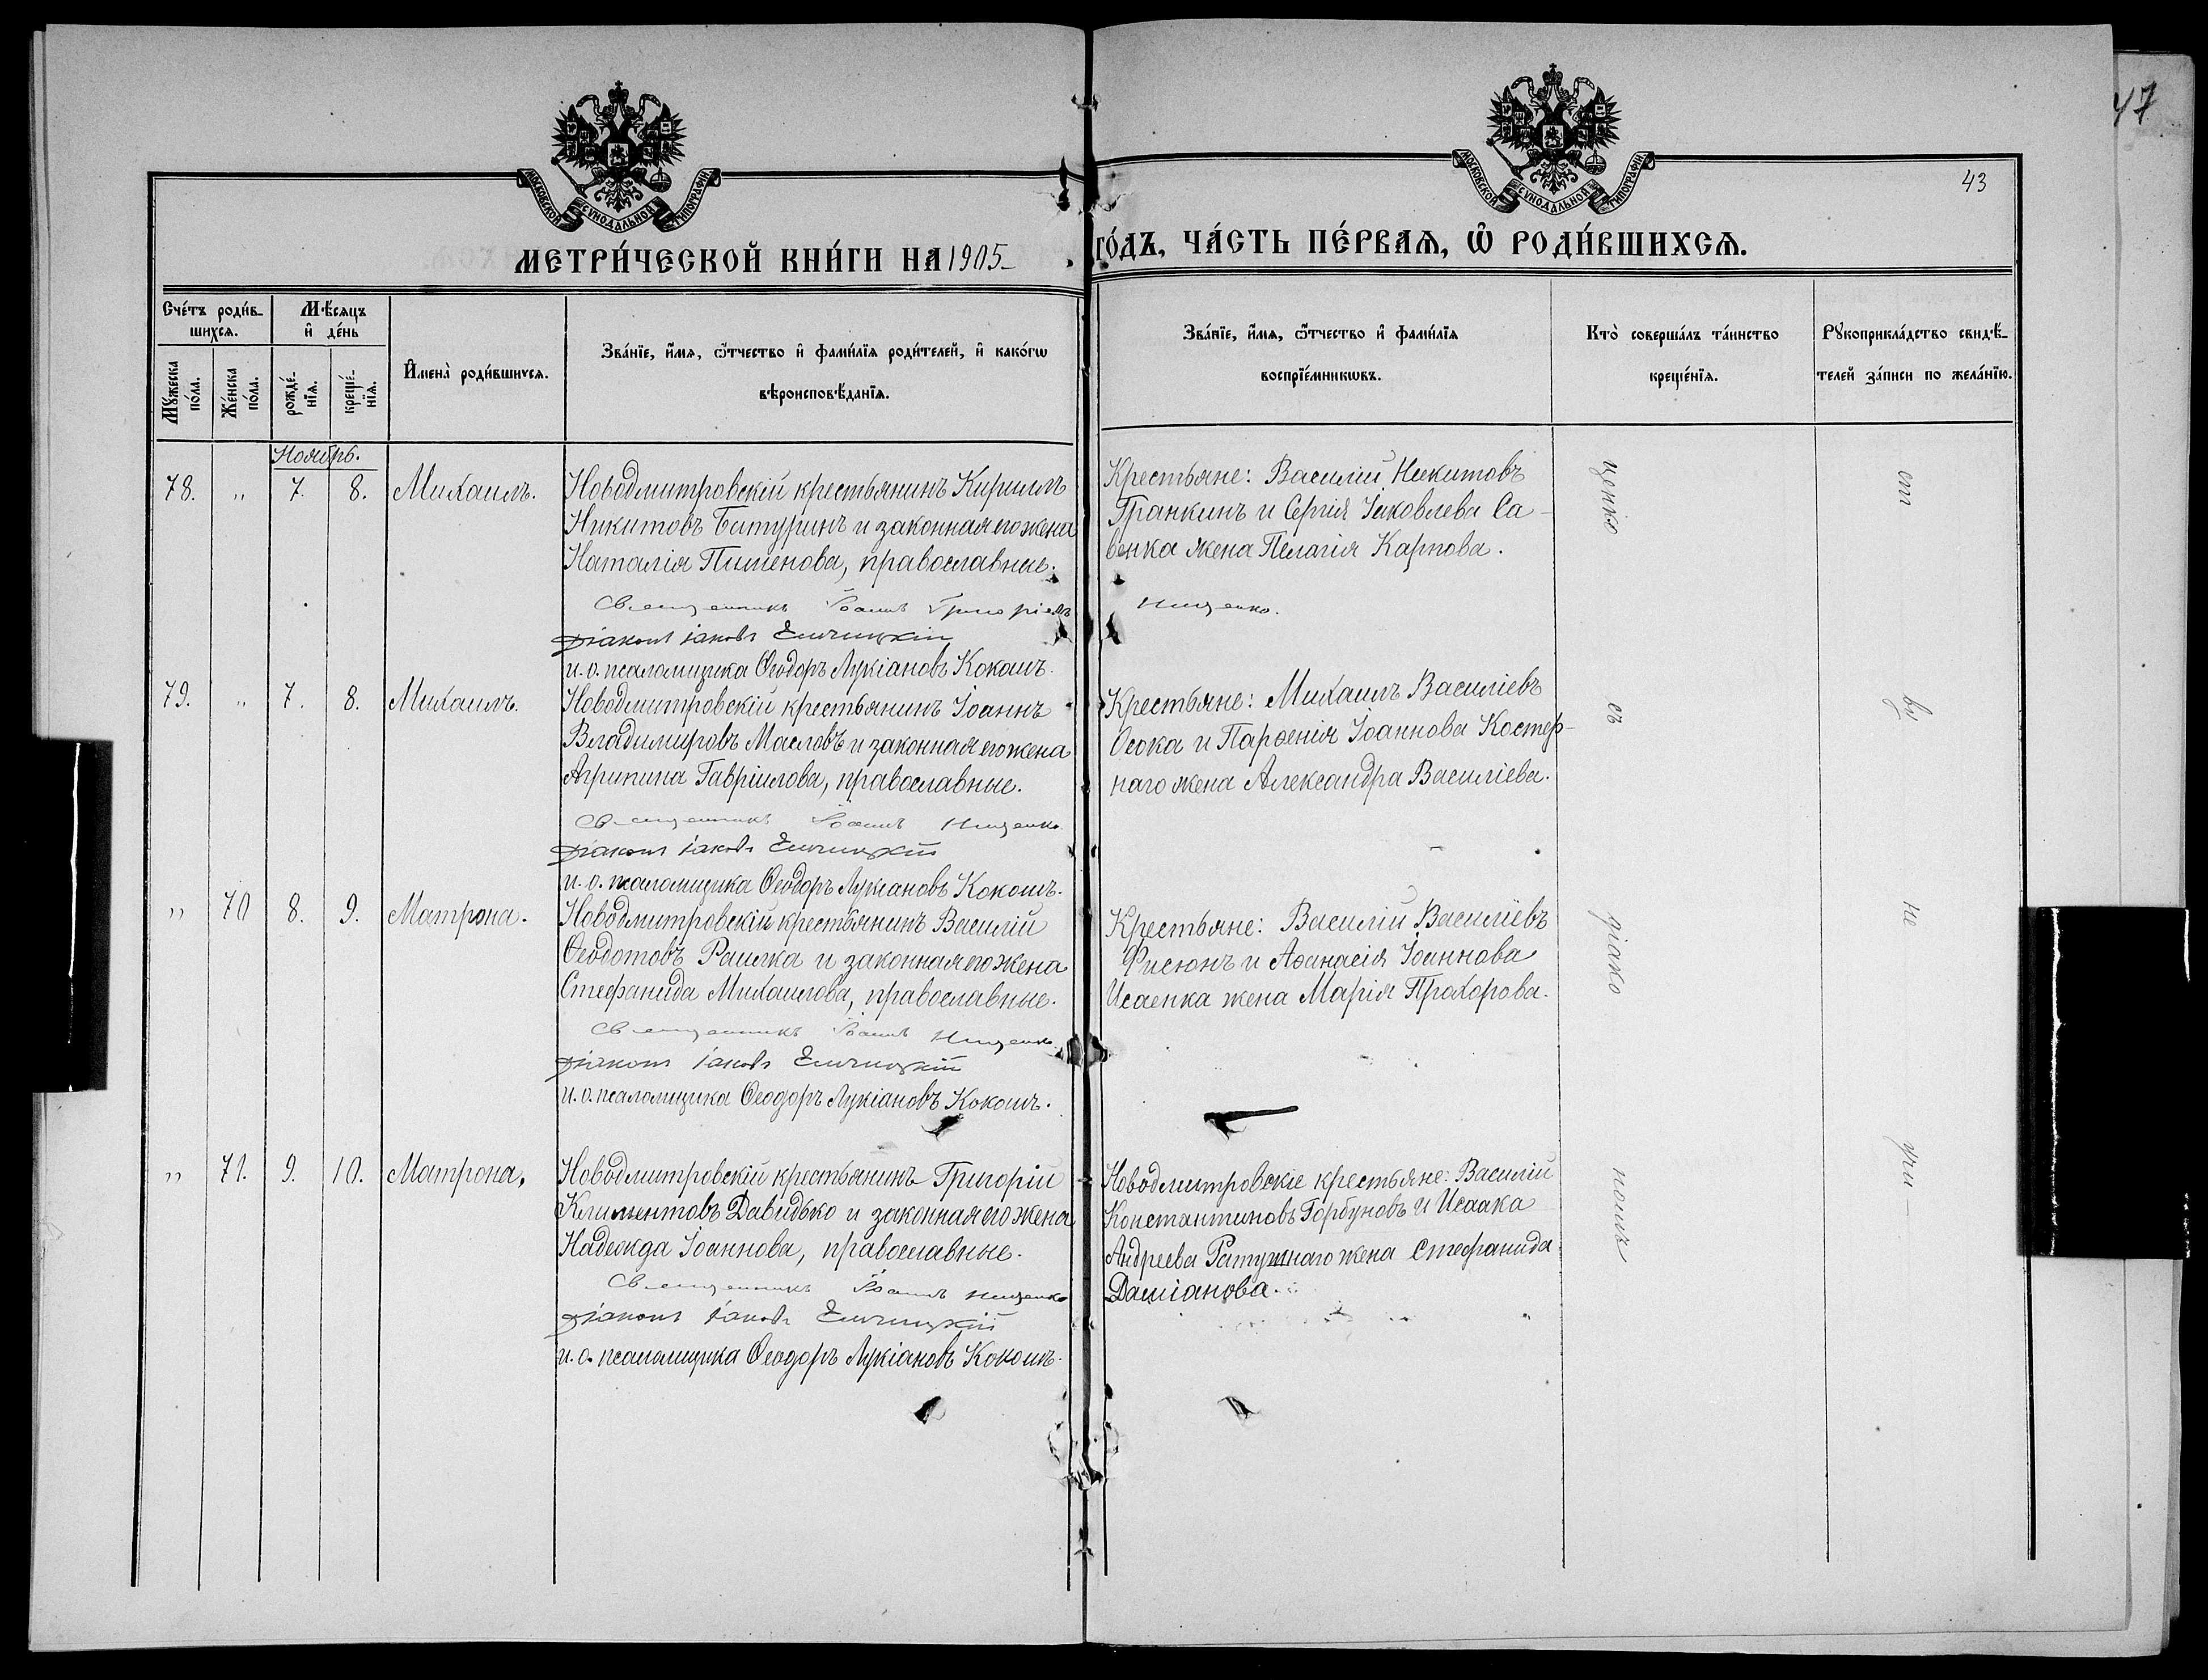 МОСКОВСКОЙ СУНОДАЛЬНОЙ ТИПОГРАФІИ.
МОСКОВСКОЙ СУНОДАЛЬНОЙ ТИПОГРАФІИ.
47
43
МЕТРИ́ЧЕСКОЙ КНИ́ГИ НА 1905
ГО́ДЪ, ЧА́СТЬ ПЕ́РВАѦ, Ѡ҆ РОДИ́ВШИХСѦ.
Сче́тъ роди́в-
шихсѧ.
Мѣ́сѧцъ
и҆ де́нь
Мꙋ́жеска
по́ла.
Же́нска
по́ла.
рожде́-
нїѧ.
креще́-
нїѧ.
И҆мена̀ роди́вшихсѧ.
Зва́нїе, и҆́мѧ, ѻ҆́тчество и҆ фами́лїѧ роди́телей, и҆ како́гѡ
вѣроисповѣ́данїѧ.
Зва́нїе, и҆́мѧ, ѻ҆́тчество и҆ фами́лїѧ
воспрїе́мникѡвъ.
Кто̀ соверша́лъ та́инство
креще́нїѧ.
Рꙋкоприкла́дство свидѣ́-
телей за́писи по жела́нїю.
Ноябрь.
78. " 7. 8. Михаилъ.
Новодмитровскій крестьянинъ Кириллъ
Никитовъ Батуринъ и законная его жена
Наталія Пименова, православные.
Священникъ Іоаннъ Григоріевъ Нищенко.
Діаконъ Іаковъ
и. о. псаломщика Ѳеодоръ Лукіановъ Кокошъ.
Крестьяне: Василій Никитовъ
Гранкинъ и Сергія Іаковлева Са-
венка жена Пелагія Карпова.
ценко
79. " 7. 8. Михаилъ.
Новодмитровскій крестьянинъ Іоаннъ
Владимировъ Масловъ и законная его жена
Агрипина Гавріилова, православные.
Священникъ Іоаннъ Нищенко
Діаконъ Іаковъ
и. о. псаломщика Ѳеодоръ Лукіановъ Кокошъ.
Крестьяне: Михаилъ Василіевъ
Осока и Парѳенія Іоаннова Костер-
наго жена Александра Василіева.
съ
" 70 8. 9. Матрона.
Новодмитровскій крестьянинъ Василій
Ѳеодотовъ Рашка и законная его жена
Стефанида Михаилова, православные.
Священникъ Іоаннъ Нищенко
Діаконъ Іаковъ
и. о. псаломщика Ѳеодоръ Лукіановъ Кокошъ.
Крестьяне: Василій Василіевъ
Фисюнъ и Аѳанасія Іоаннова
Исаенка жена Марія Прохорова.
діако
не
" 71. 9. 10. Матрона.
Новодмитровскій крестьянинъ Григорій
Климентовъ Давидько и законная его жена
Надежда Іоаннова, православные.
Священникъ Іоаннъ Нищенко
Діаконъ Іаковъ
и. о. псаломщика Ѳеодоръ Лукіановъ Кокошъ.
Новодмитровскіе крестьяне: Василій
Константиновъ Горбуновъ и Исаака
Андреева Ратушнаго жена Стефанида
Даміанова.
номъ